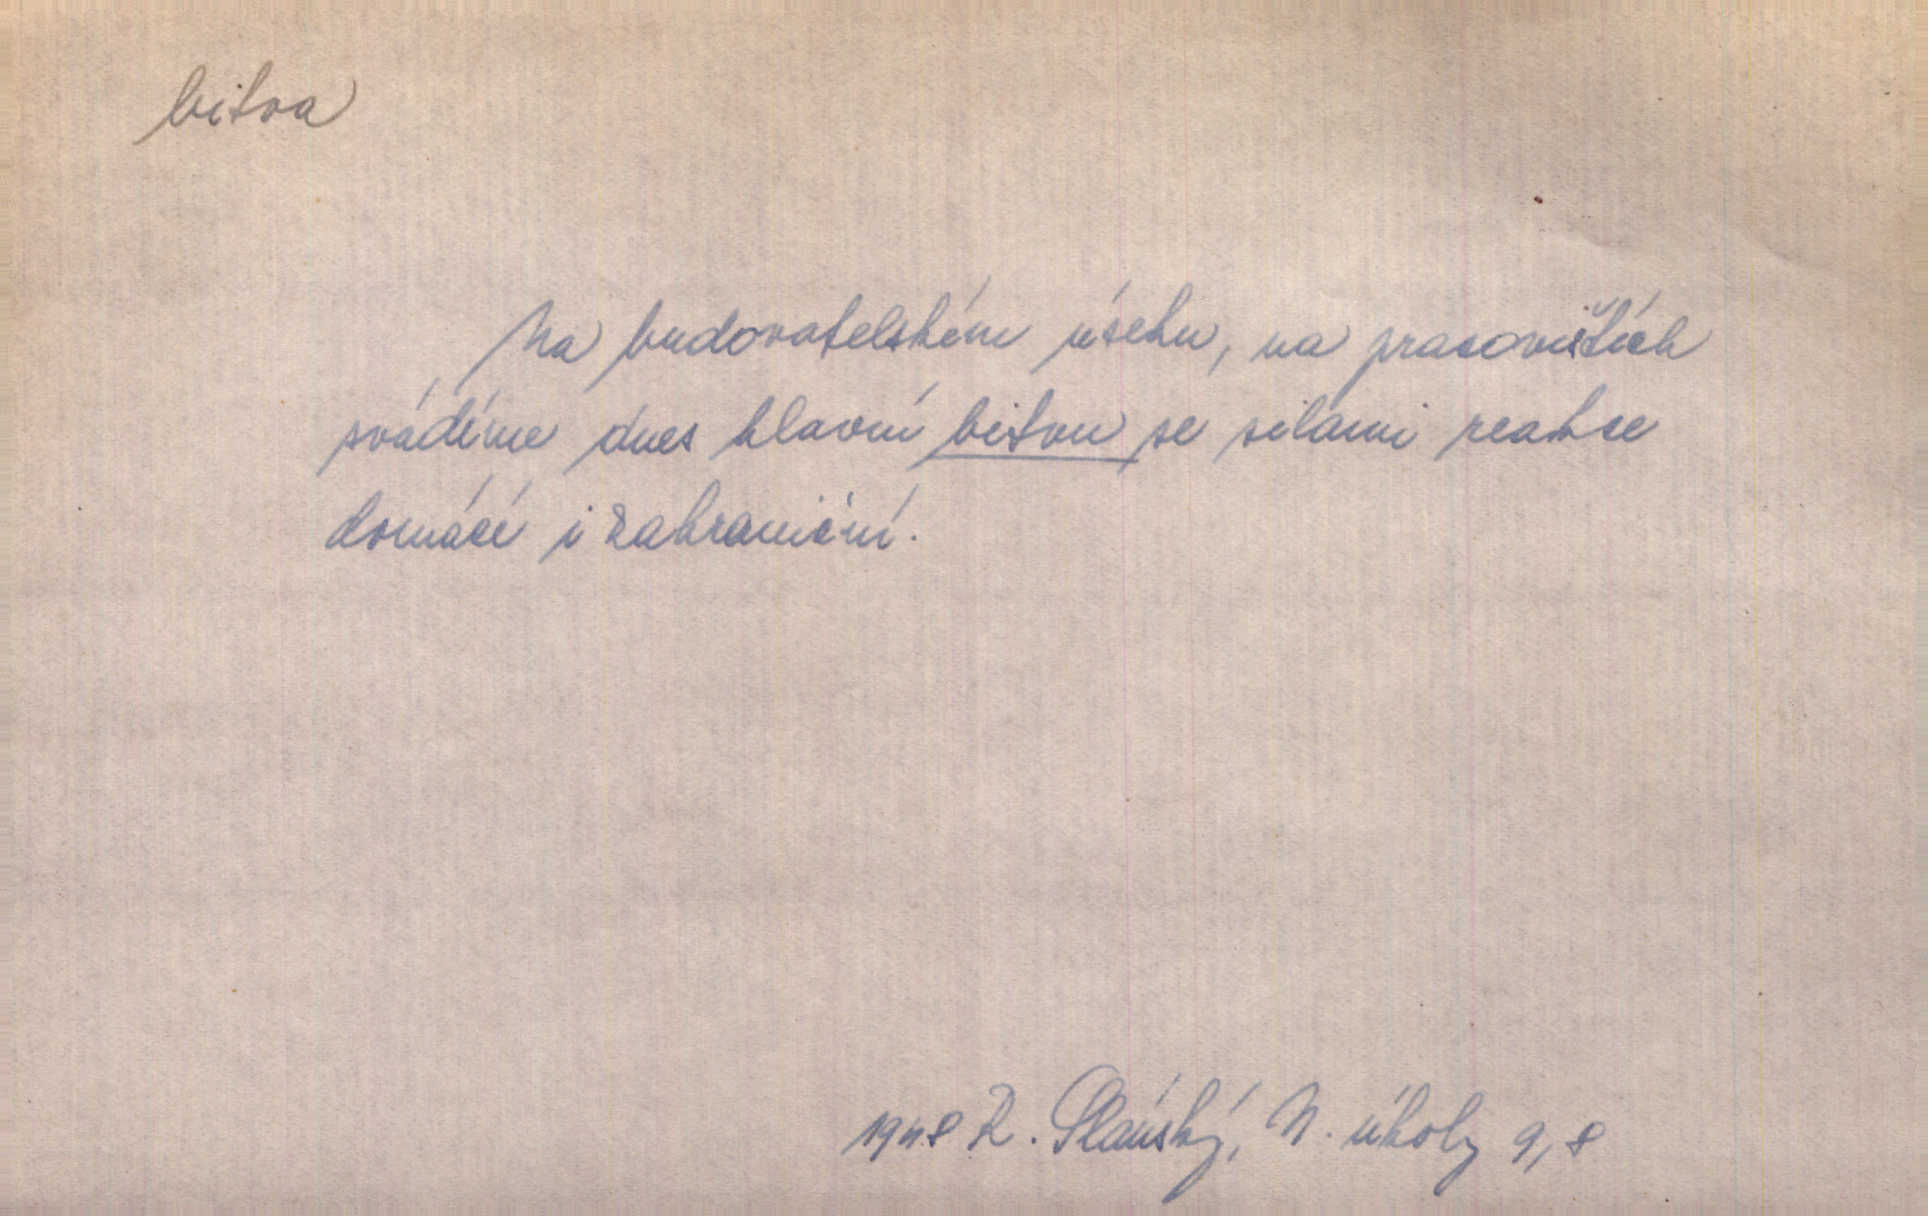 bitva
Na budovatelském úseku, na pracovištích
svádíme dnes hlavní bitvu se silami reakce
domácí i zahraniční.
1948 R. Slánský, N. úkoly 9,8